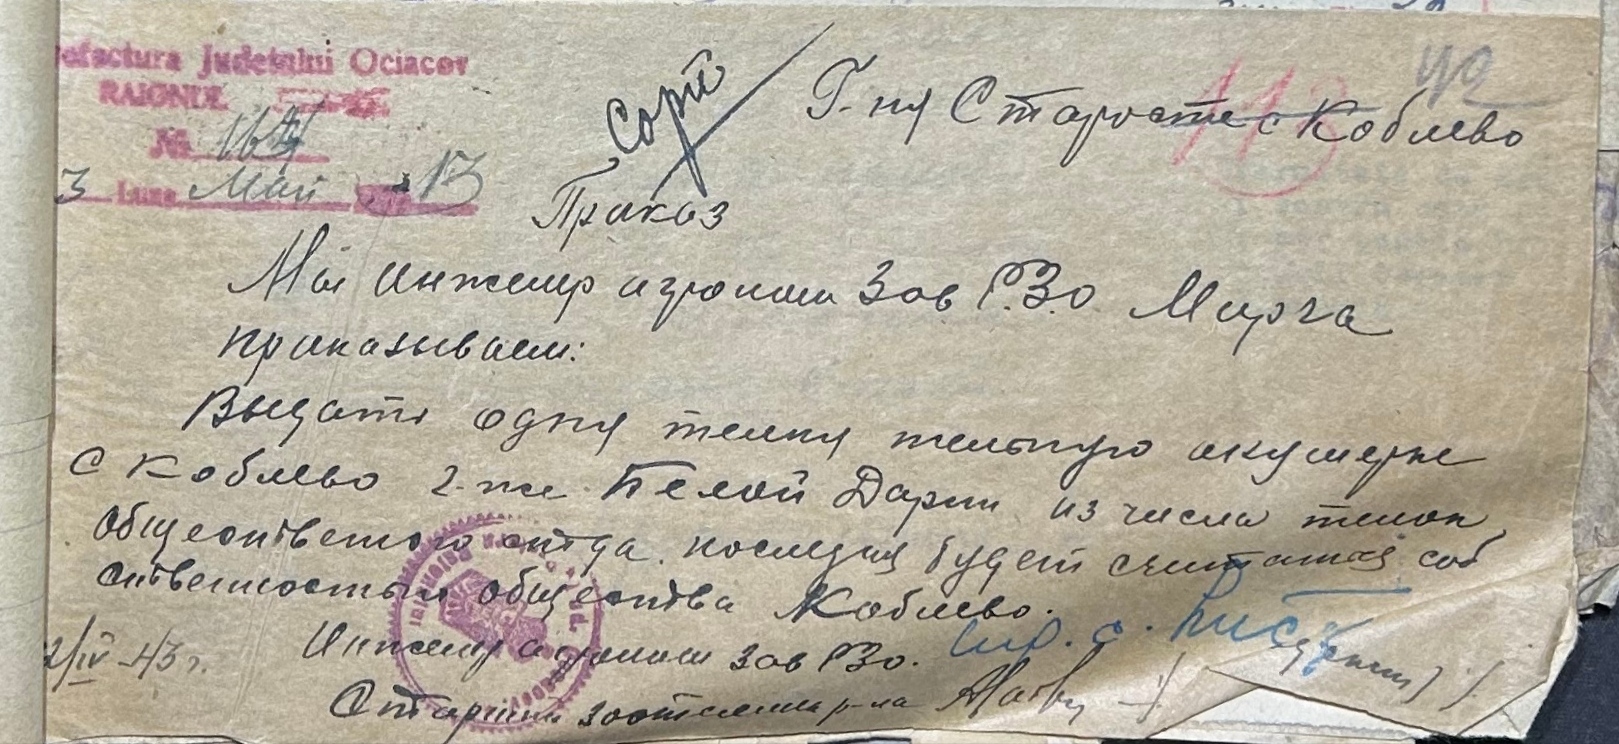 Prefectura Judetului Ociacov
RAIONUL
№ 164
3 Luna Май 43
112
42
Сорт
Г-ну Старосте с Коблево
Приказ
Мы инженер агроном Зав РЗО Мирча
приказываем:
Выдать одну телку тельную акушерке
с Коблево г-же Белой Дарии из числа телок
общественого стада. последняя будет считатся соб
ственностью общества Коблево.
Инженер агроном Зав РЗО.
2/IV-43 г.
Старший зоотехник р-на